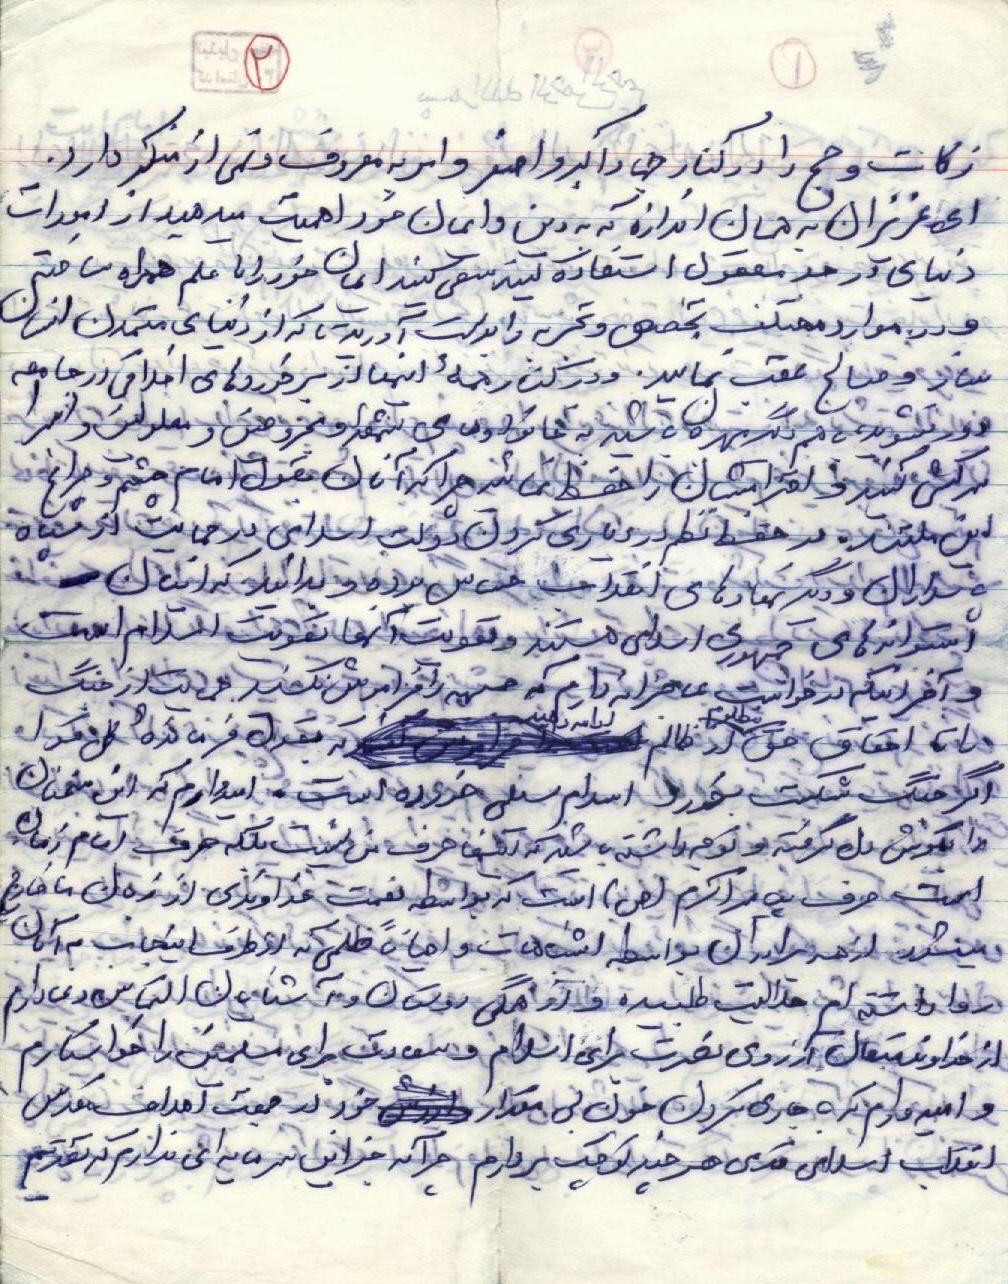 ۲
۱
زکات و حج را در کنار جهاد اکبر و اصغر و امر به معروف و نهی از منکر دارد.
ای عزیزان به همان اندازه که به دین و ایمان خود اهمیت میدهید از امورات
دنیای در حد معقول استفاده کنید سعی کنید ایمان خود را با علم همراه ساخته
و در موارد مختلف تخصص و تجربه را بدست آورید تا که از دنیای متمدن انسان
ساز و صالح عقب نمانید. و در کنار همهٔ اینها از برخوردهای اخلاقی در جامعه
با همدیگر بهره باشید به خانوادهای شهدا و مجروحین و معلولین و اسرا
سرکشی کنید و احترامشان را حفظ نمائید چرا که آنان بقول امام چشم و چراغ
این ملتند. در حفظ نظم در و یاری کردن دولت اسلامی در حمایت از سپاه
پاسداران و دیگر نهادهای انقلاب حساس بوده و بدانید که اینان
استوانه‌های جمهوری اسلامی هستند و تقویت آنها تقویت اسلام است
و آخر اینکه درخواست عاجزانه دارم که جبهه را فراموش نکنید حمایت از جنگ
را تا احقاق حق مظلوم از ظالم ادامه دهید که بقول فرمانده کل قوا
اگر جنگ شکست بخورد اسلام سیلی خورده است. امیدوارم که این سخنان
را بگوش دل گرفته و توجه داشته باشید که اینها حرف من نیست بلکه حرف امام زمان
است حرف پیامبر اکرم (ص) است که بواسطه نعمت خداوندی از زبان ما خارج
میشود. از همه برادران بواسطه اشتباهات و احیاناً ظلمی که از طرف اینجانب به آنان
روا داشته ام حلالیت طلبیده و از همگی دوستان و آشنایان التماس دعا دارم
از خداوند متعال آرزوی نصرت برای اسلام و سعادت برای مسلمین را خواستارم
و امیدوارم که با جاری کردن خون بی مقدار خود در جهت اهداف مقدس
انقلاب اسلامی قدمی هر چند کوچک بردارم چرا که جز این سرمایه ای ندارم که تقدیم